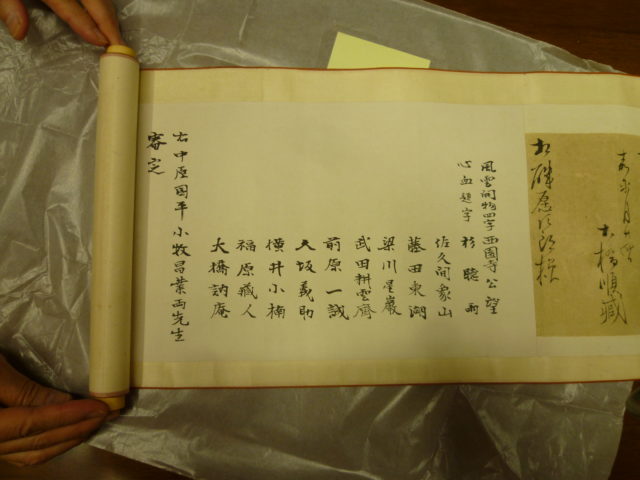 大橋順蔵
風雲間物四字西園寺公望
心血題字 杉聴雨
佐久間象山
藤田東湖
梁川星巌
武田耕雲斎
前原一誠
久坂義助
横井小楠
福原蔵人
大橋訥庵
右中原国平小牧昌業両先生
審定